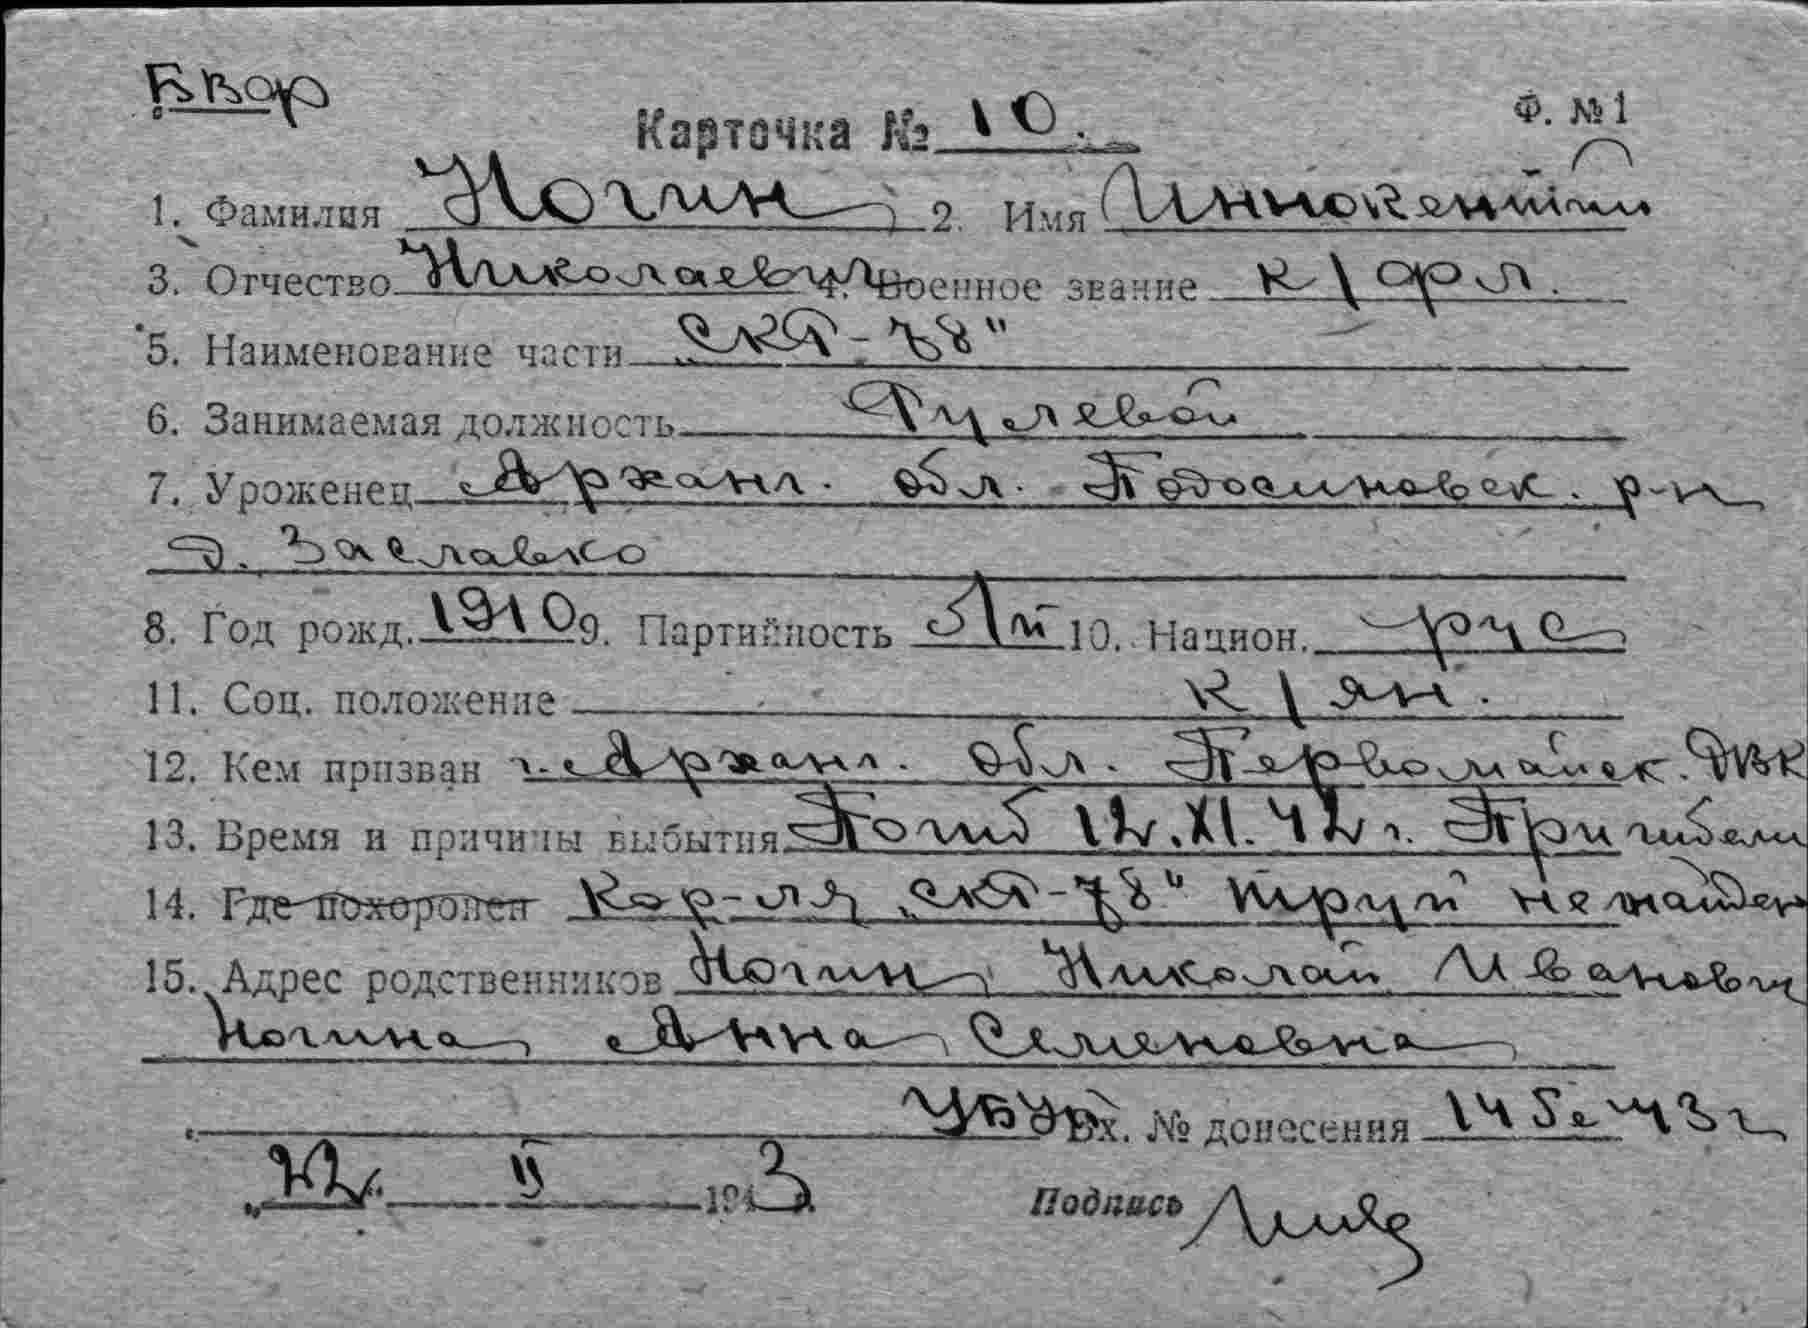 БВФ
Карточка № 10.
Ф. № 1
1. Фамилия Ногин 2. Имя Иннокентий
3. Отчество Николаевич 4. Военное звание к/фл.
5. Наименование части „СКР-78"
6. Занимаемая должность Рулевой
7. Уроженец Арханг. обл. Подосиновск. р-н
д. Заславко
8. Год рожд. 1910 9. Партийность 10. Национ. рус
11. Соц. положение к/ян.
12. Кем призван Арханг. обл. Первомайск. РВК
13. Время и причины выбытия Погиб 12.XI.42 г. При гибели
14. Где похоронен кор-ля „СКР-78" труп не найден
15. Адрес родственников Ногин Николай Иванович
Ногина Анна Семеновна
Вх. № донесения 43 г
„22" II 1943
Подпись